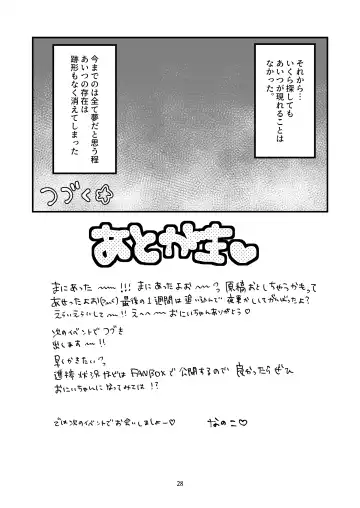 それから…
いくら探しても
あいつが現れることは
なかった。
今までのは全て夢だと思う程
あいつの存在は
跡形もなく消えてしまった
つづく
あとがき
まにあった〜〜!!! まにあったよお〜〜 原稿おとしちゃうかもって
あせったよお 最後の1週間は追い込んで夜更かししてがんばったよ?
えらいえらいして〜!! え〜〜 おにいちゃんありがとう♡
次のイベントでつづき
出します〜!!
早くかきたい
進捗状況などはFANBOXで公開するので 良かったらぜひ
おにいちゃんになってみては!?
では次のイベントでお会いしましょー♡ なのこ♡
28